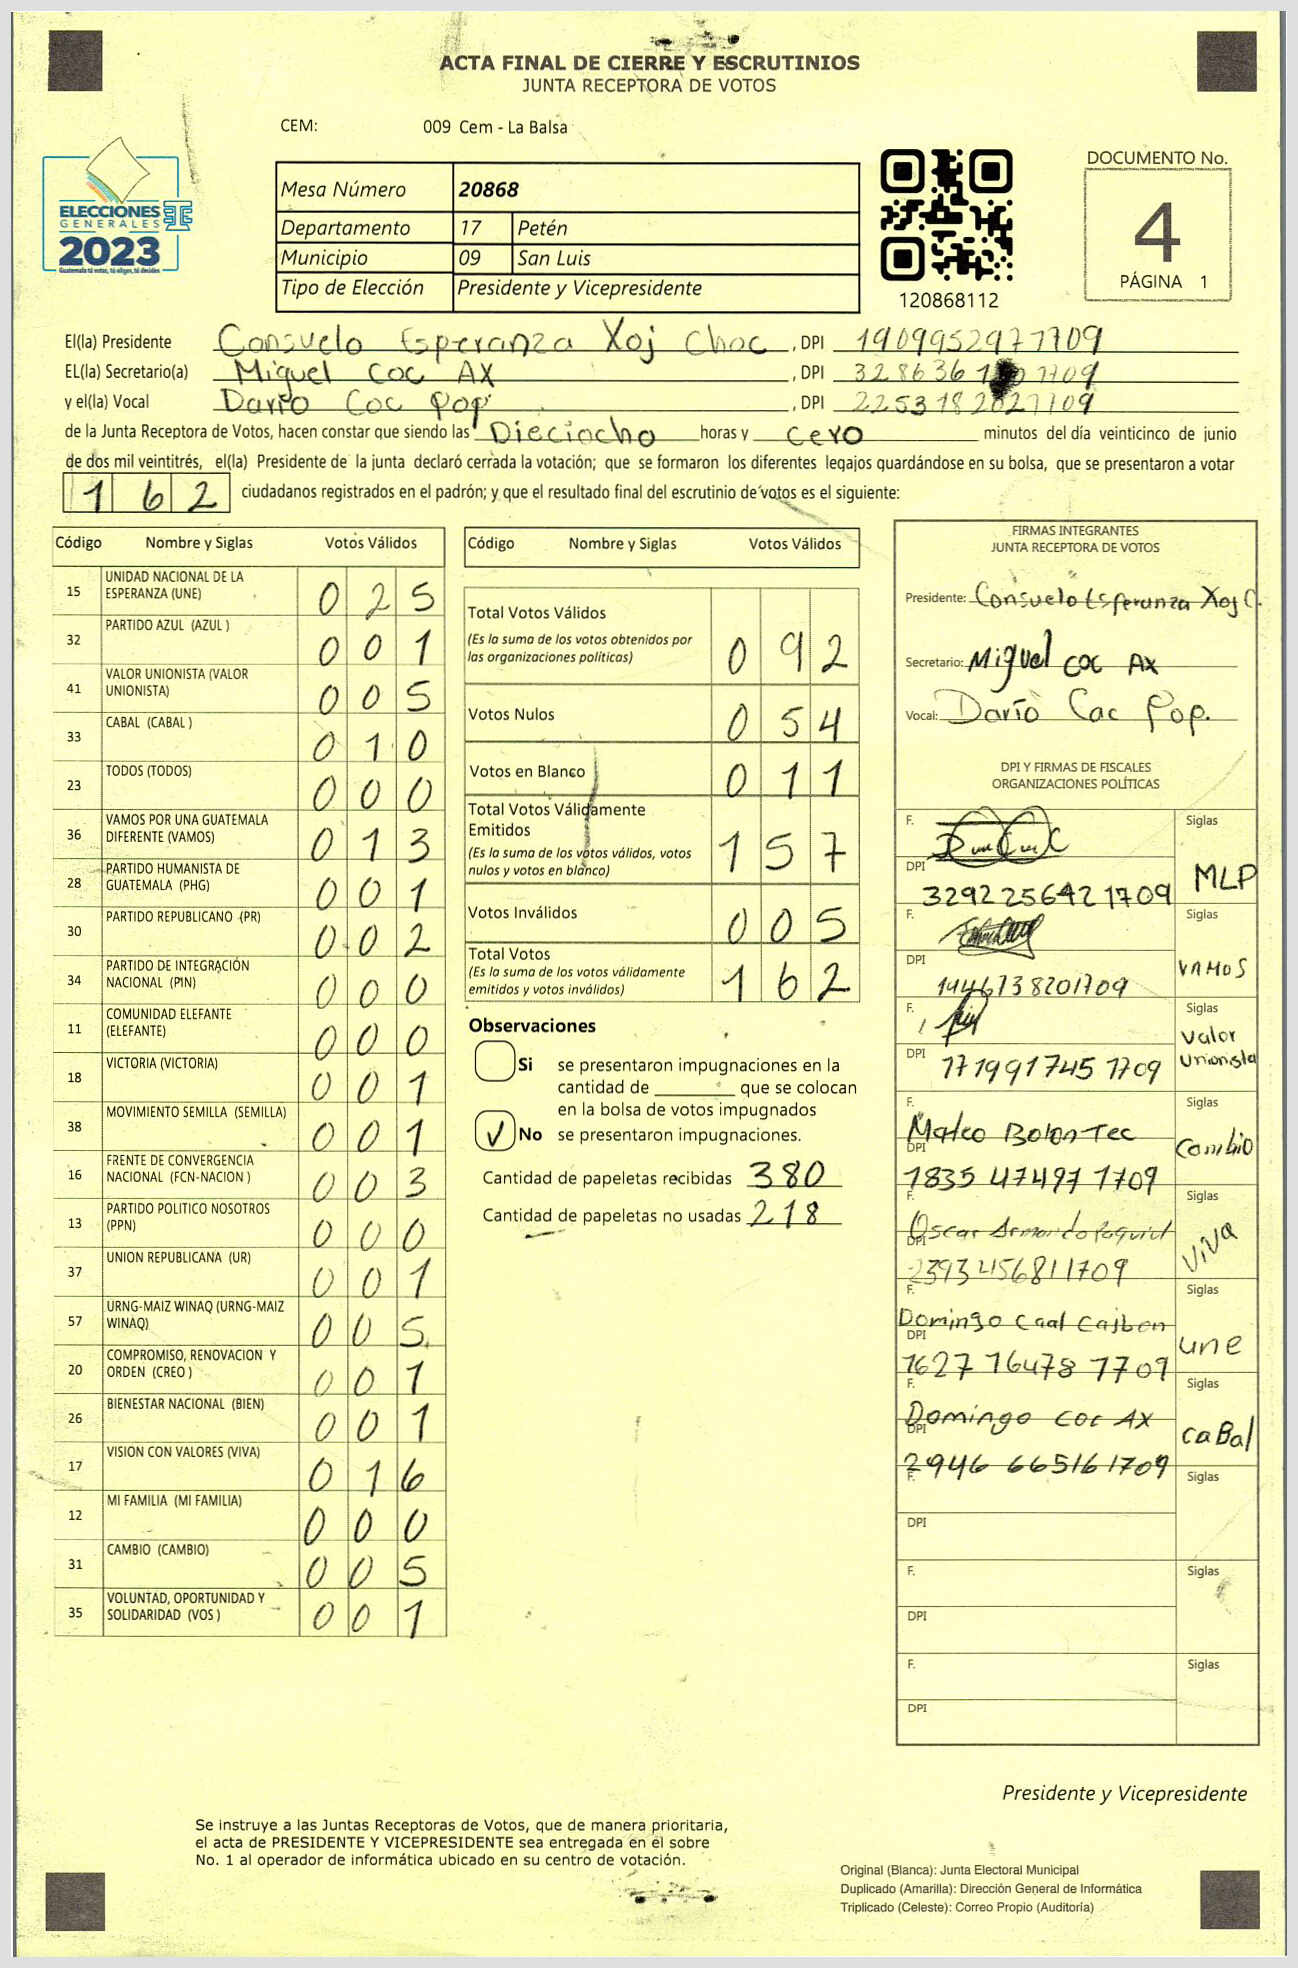 ACTA FINAL DE CIERRE Y ESCRUTINIOS
JUNTA RECEPTORA DE VOTOS
CEM: 009 Cem - La Balsa
ELECCIONES
GENERALES
2023
Guatemala tú votas, tú eliges, tú decides
Mesa Número 20868
Departamento 17 Petén
Municipio 09 San Luis
Tipo de Elección Presidente y Vicepresidente
120868112
DOCUMENTO No.
4
PÁGINA 1
El(la) Presidente Consuelo Esperanza Xoj Choc, DPI 1909952971709
EL(la) Secretario(a) Miguel Coc AX, DPI
y el(la) Vocal Darío Coc Pop, DPI
de la Junta Receptora de Votos, hacen constar que siendo las Dieciocho horas y cero minutos del día veinticinco de junio
de dos mil veintitrés, el(la) Presidente de la junta declaró cerrada la votación; que se formaron los diferentes legajos guardándose en su bolsa, que se presentaron a votar
162 ciudadanos registrados en el padrón; y que el resultado final del escrutinio de votos es el siguiente:
Código Nombre y Siglas Votos Válidos
15 UNIDAD NACIONAL DE LA ESPERANZA (UNE) 025
32 PARTIDO AZUL (AZUL ) 001
41 VALOR UNIONISTA (VALOR UNIONISTA) 005
33 CABAL (CABAL ) 010
23 TODOS (TODOS) 000
36 VAMOS POR UNA GUATEMALA DIFERENTE (VAMOS) 013
28 PARTIDO HUMANISTA DE GUATEMALA (PHG) 001
30 PARTIDO REPUBLICANO (PR) 002
34 PARTIDO DE INTEGRACIÓN NACIONAL (PIN) 000
11 COMUNIDAD ELEFANTE (ELEFANTE) 000
18 VICTORIA (VICTORIA) 001
38 MOVIMIENTO SEMILLA (SEMILLA) 001
16 FRENTE DE CONVERGENCIA NACIONAL (FCN-NACION ) 003
13 PARTIDO POLITICO NOSOTROS (PPN) 000
37 UNION REPUBLICANA (UR) 001
57 URNG-MAIZ WINAQ (URNG-MAIZ WINAQ) 005
20 COMPROMISO, RENOVACION Y ORDEN (CREO ) 001
26 BIENESTAR NACIONAL (BIEN) 001
17 VISION CON VALORES (VIVA) 016
12 MI FAMILIA (MI FAMILIA) 000
31 CAMBIO (CAMBIO) 005
35 VOLUNTAD, OPORTUNIDAD Y SOLIDARIDAD (VOS ) 001
Código Nombre y Siglas Votos Válidos
Total Votos Válidos 092
(Es la suma de los votos obtenidos por
las organizaciones políticas)
Votos Nulos 054
Votos en Blanco 011
Total Votos Válidamente
Emitidos 157
(Es la suma de los votos válidos, votos
nulos y votos en blanco)
Votos Inválidos 005
Total Votos 162
(Es la suma de los votos válidamente
emitidos y votos inválidos)
Observaciones
Si se presentaron impugnaciones en la
cantidad de ________ que se colocan
en la bolsa de votos impugnados
✓ No se presentaron impugnaciones.
Cantidad de papeletas recibidas 380
Cantidad de papeletas no usadas 218
FIRMAS INTEGRANTES
JUNTA RECEPTORA DE VOTOS
Presidente: Consuelo Esperanza Xoj C.
Secretario: Miguel coc AX
Vocal: Darío Coc Pop.
DPI Y FIRMAS DE FISCALES
ORGANIZACIONES POLÍTICAS
F. Siglas
DPI 3292256421709 MLP
F. Siglas
DPI 1446738201709 VAMOS
F. Siglas
DPI 1719917451709 Valor Unionista
F. Mateo Bolon Tec Siglas
DPI 1835 47497 1709 Cambio
F. Oscar Armando Siglas
DPI 2393456811709 ViVa
F. Domingo Caal Cajbon Siglas
DPI 1627 16478 1709 une
F. Domingo coc AX Siglas
DPI 2946 665161709 caBal
F. Siglas
DPI
F. Siglas
DPI
F. Siglas
DPI
Presidente y Vicepresidente
Se instruye a las Juntas Receptoras de Votos, que de manera prioritaria,
el acta de PRESIDENTE Y VICEPRESIDENTE sea entregada en el sobre
No. 1 al operador de informática ubicado en su centro de votación.
Original (Blanca): Junta Electoral Municipal
Duplicado (Amarilla): Dirección General de Informática
Triplicado (Celeste): Correo Propio (Auditoría)